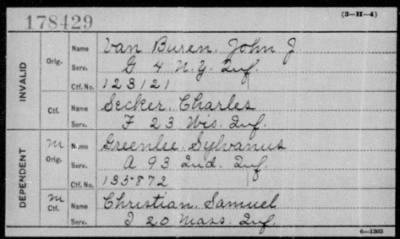 178429 (3-H-4)
INVALID
Orig. Name Van Buren, John J.
Serv. G 4 N.Y. Inf.
Ctf. No. 123121
Ctf. Name Secker, Charles
Serv. F 23 Wis. Inf.
DEPENDENT
M Orig. Name Greenlee, Sylvanus
Serv. A 93 Ind. Inf.
Ctf. No. 135872
M Ctf. Name Christian, Samuel
Serv. I 20 Mass. Inf.
6-1303